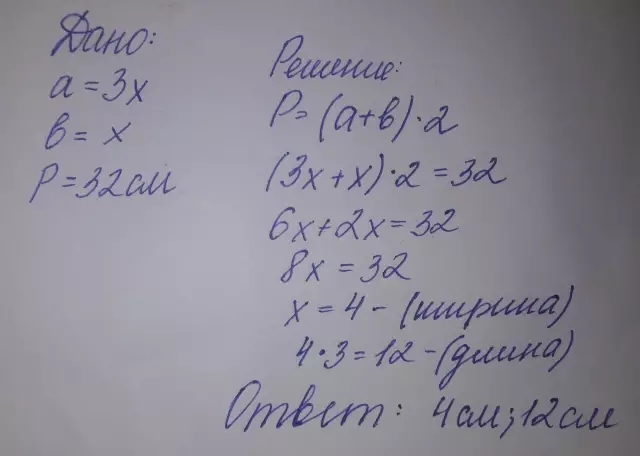 Дано:
a = 3x
в = x
P = 32 см
Решение:
P = (a+в)·2
(3x + x)·2 = 32
6x + 2x = 32
8x = 32
x = 4 - (ширина)
4·3 = 12 - (длина)
Ответ: 4 см; 12 см